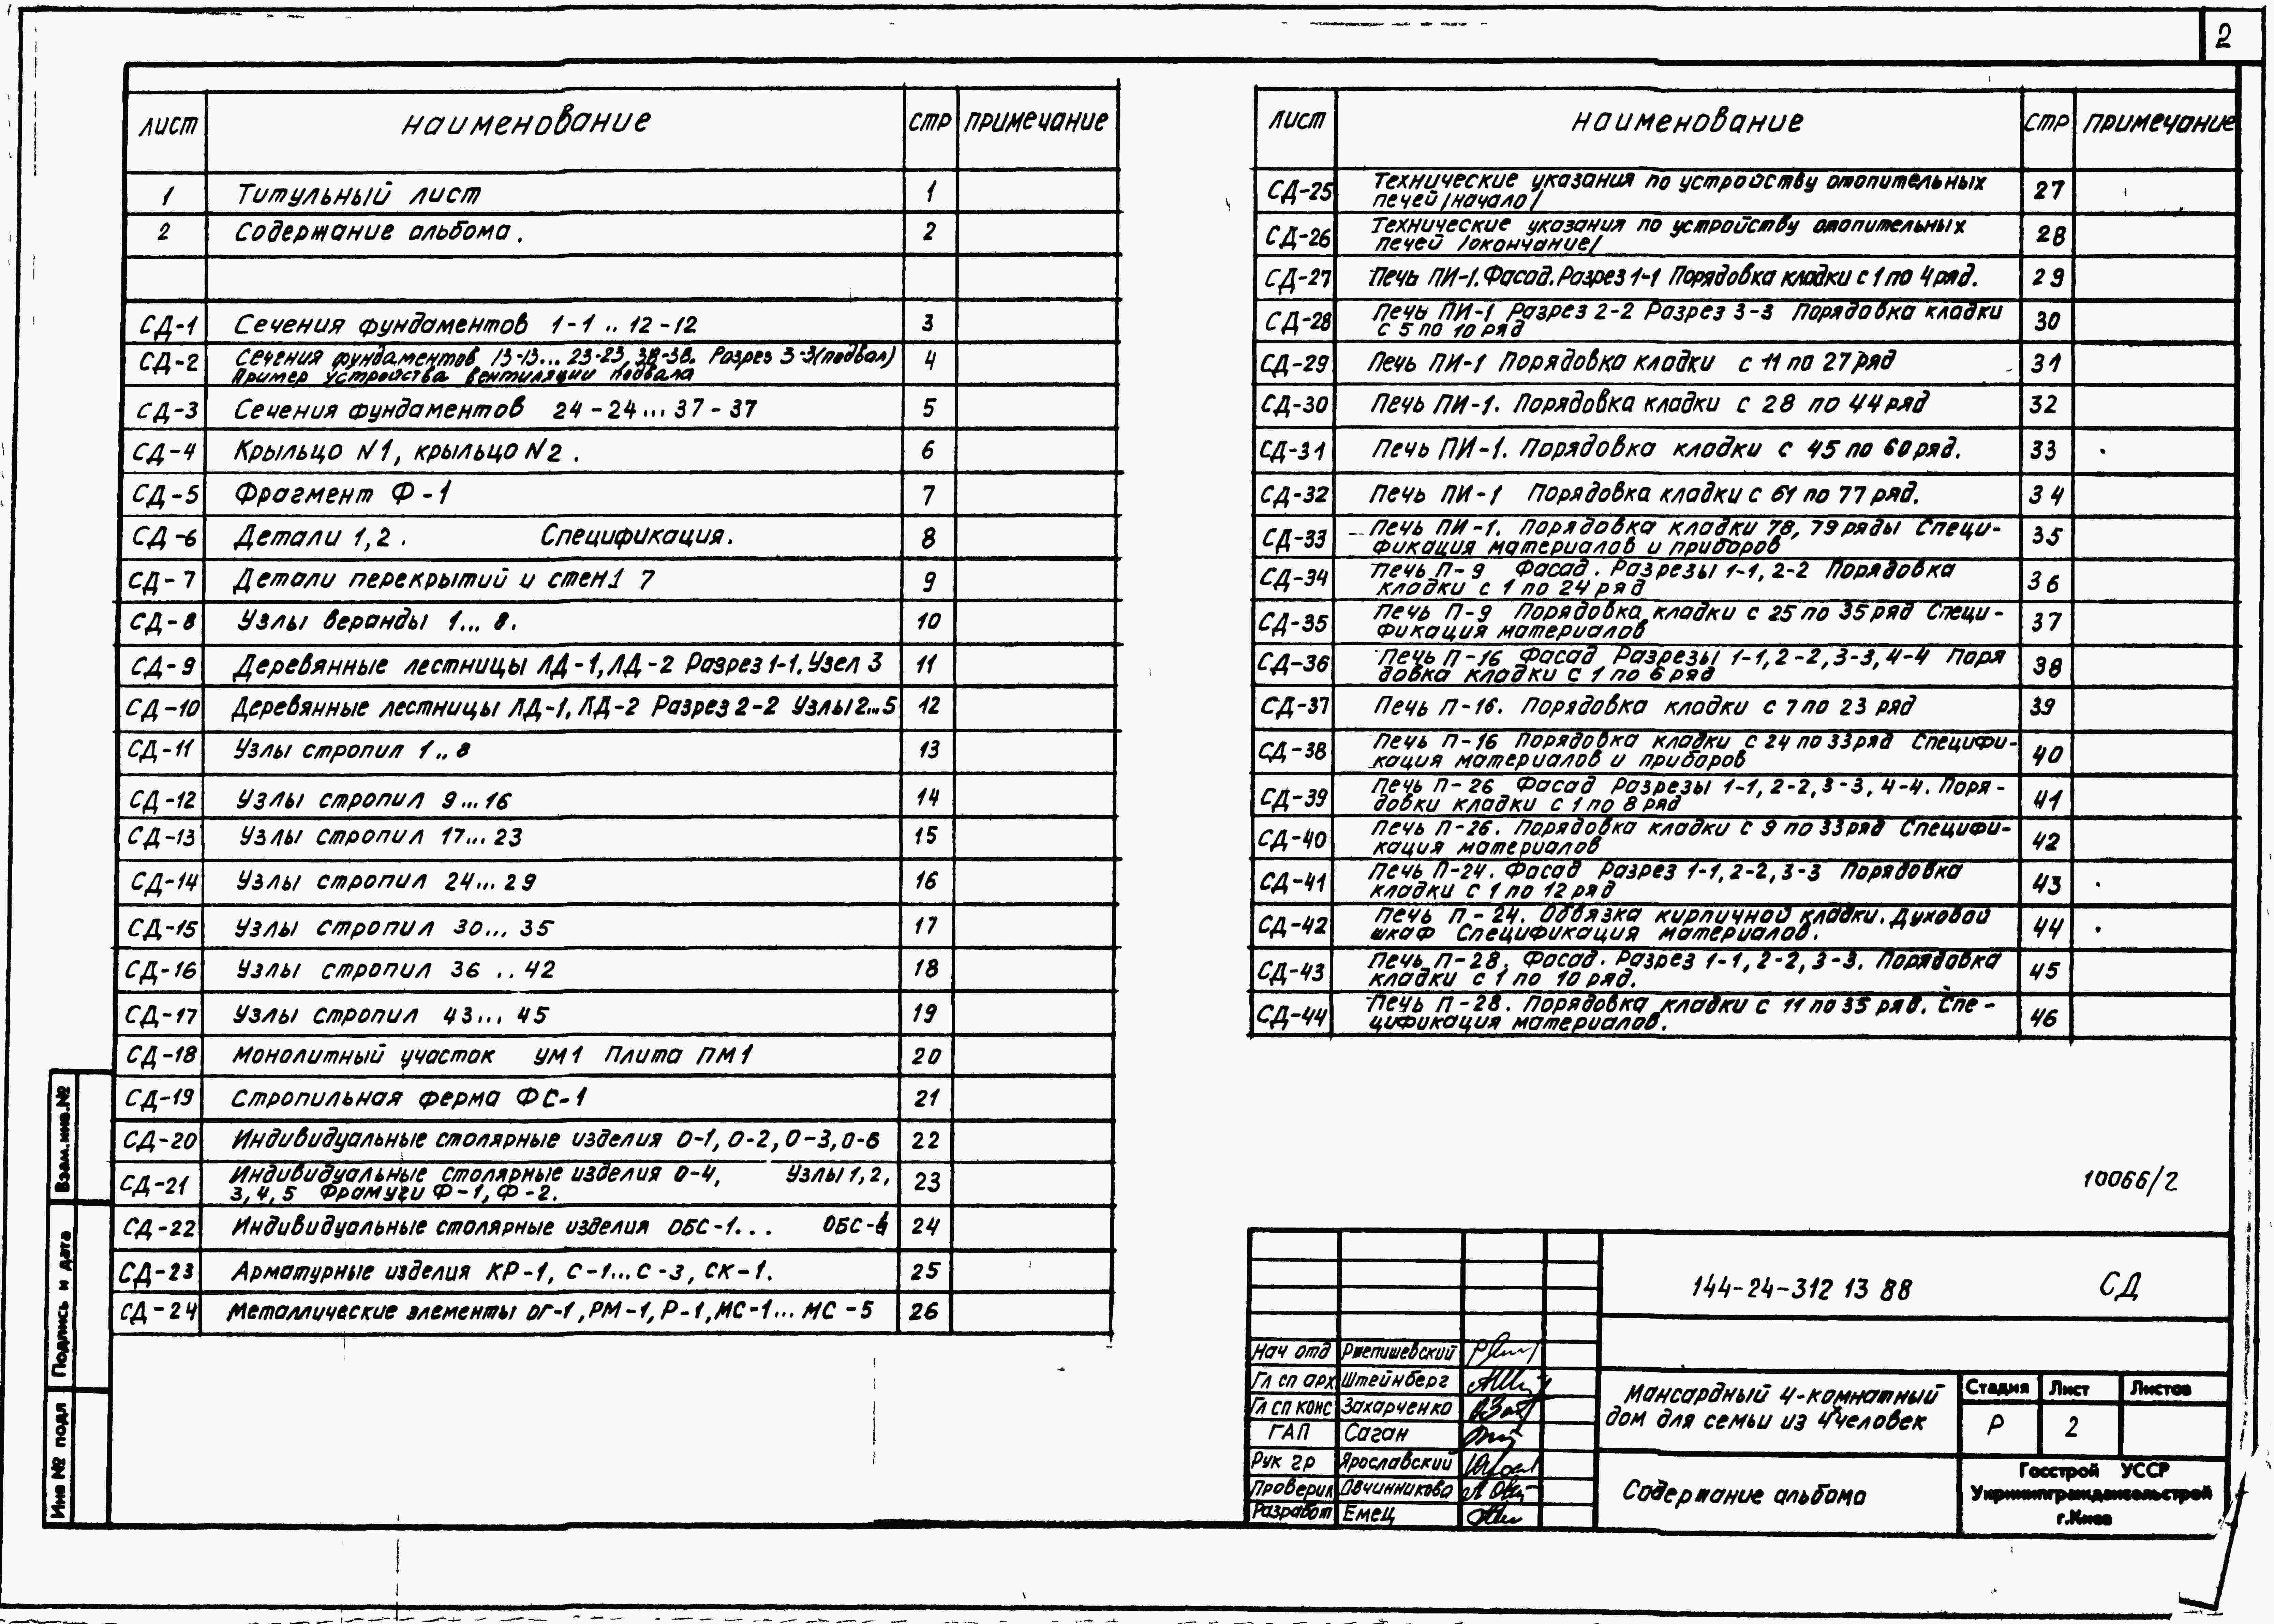 2
лист наименование стр примечание
1 Титульный лист 1
2 Содержание альбома. 2
СД-1 Сечения фундаментов 1-1 .. 12-12 3
СД-2 Сечения фундаментов 13-13... 23-23, 38-38. Разрез 3-3(подвал) 4
Пример устройства вентиляции подвала
СД-3 Сечения фундаментов 24-24... 37-37 5
СД-4 Крыльцо N1, крыльцо N2. 6
СД-5 Фрагмент Ф-1 7
СД-6 Детали 1,2. Спецификация. 8
СД-7 Детали перекрытий и стен1 7 9
СД-8 Узлы веранды 1... 8. 10
СД-9 Деревянные лестницы ЛД-1, ЛД-2 Разрез 1-1. Узел 3 11
СД-10 Деревянные лестницы ЛД-1, ЛД-2 Разрез 2-2 Узлы 2...5 12
СД-11 Узлы стропил 1..8 13
СД-12 Узлы стропил 9...16 14
СД-13 Узлы стропил 17... 23 15
СД-14 Узлы стропил 24... 29 16
СД-15 Узлы стропил 30... 35 17
СД-16 Узлы стропил 36 .. 42 18
СД-17 Узлы стропил 43... 45 19
СД-18 Монолитный участок УМ1 Плита ПМ1 20
СД-19 Стропильная ферма ФС-1 21
СД-20 Индивидуальные столярные изделия О-1, О-2, О-3, О-6 22
СД-21 Индивидуальные столярные изделия О-4, Узлы 1, 2, 23
3, 4, 5 Фрамуги Ф-1, Ф-2.
СД-22 Индивидуальные столярные изделия ОБС-1... ОБС-6 24
СД-23 Арматурные изделия КР-1, С-1...С-3, СК-1. 25
СД-24 Металлические элементы ОГ-1, РМ-1, Р-1, МС-1... МС-5 26
лист наименование стр примечание
СД-25 Технические указания по устройству отопительных 27
печей /начало/
СД-26 Технические указания по устройству отопительных 28
печей /окончание/
СД-27 Печь ПИ-1. Фасад. Разрез 1-1 Порядовка кладки с 1 по 4 ряд. 29
СД-28 Печь ПИ-1 Разрез 2-2 Разрез 3-3 Порядовка кладки 30
с 5 по 10 ряд
СД-29 Печь ПИ-1 Порядовка кладки с 11 по 27 ряд 31
СД-30 Печь ПИ-1. Порядовка кладки с 28 по 44 ряд 32
СД-31 Печь ПИ-1. Порядовка кладки с 45 по 60 ряд. 33
СД-32 Печь ПИ-1 Порядовка кладки с 61 по 77 ряд. 34
СД-33 Печь ПИ-1. Порядовка кладки 78, 79 ряды Специ- 35
фикация материалов и приборов
СД-34 Печь П-9 Фасад. Разрезы 1-1, 2-2 Порядовка 36
кладки с 1 по 24 ряд
СД-35 Печь П-9 Порядовка кладки с 25 по 35 ряд Специ- 37
фикация материалов
СД-36 Печь П-16 Фасад Разрезы 1-1, 2-2, 3-3, 4-4 Поря 38
довка кладки с 1 по 6 ряд
СД-37 Печь П-16. Порядовка кладки с 7 по 23 ряд 39
СД-38 Печь П-16 Порядовка кладки с 24 по 33 ряд Специфи- 40
кация материалов и приборов
СД-39 Печь П-26 Фасад Разрезы 1-1, 2-2, 3-3, 4-4. Поря- 41
довки кладки с 1 по 8 ряд
СД-40 Печь П-26. Порядовка кладки с 9 по 33 ряд Специфи- 42
кация материалов
СД-41 Печь П-24. Фасад Разрез 1-1, 2-2, 3-3 Порядовка 43
кладки с 1 по 12 ряд
СД-42 Печь П-24. Обвязка кирпичной кладки. Духовой 44
шкаф Спецификация материалов.
СД-43 Печь П-28. Фасад. Разрез 1-1, 2-2, 3-3. Порядовка 45
кладки с 1 по 10 ряд.
СД-44 Печь П-28. Порядовка кладки с 11 по 35 ряд. Спе- 46
цификация материалов.
10066/2
144-24-312 13 88 СД
Нач отд Ржепишевский
Гл сп арх Штейнберг
Гл сп конс Захарченко
ГАП Саган
Рук гр Ярославский
Проверил Овчинникова
Разработ Емец
Мансардный 4-комнатный
дом для семьи из 4 человек
Стадия Лист Листов
Р 2
Содержание альбома
Госстрой УССР
Укрниипграждансельстрой
г.Киев
Взам.инв.№
Подпись и дата
Инв № подл